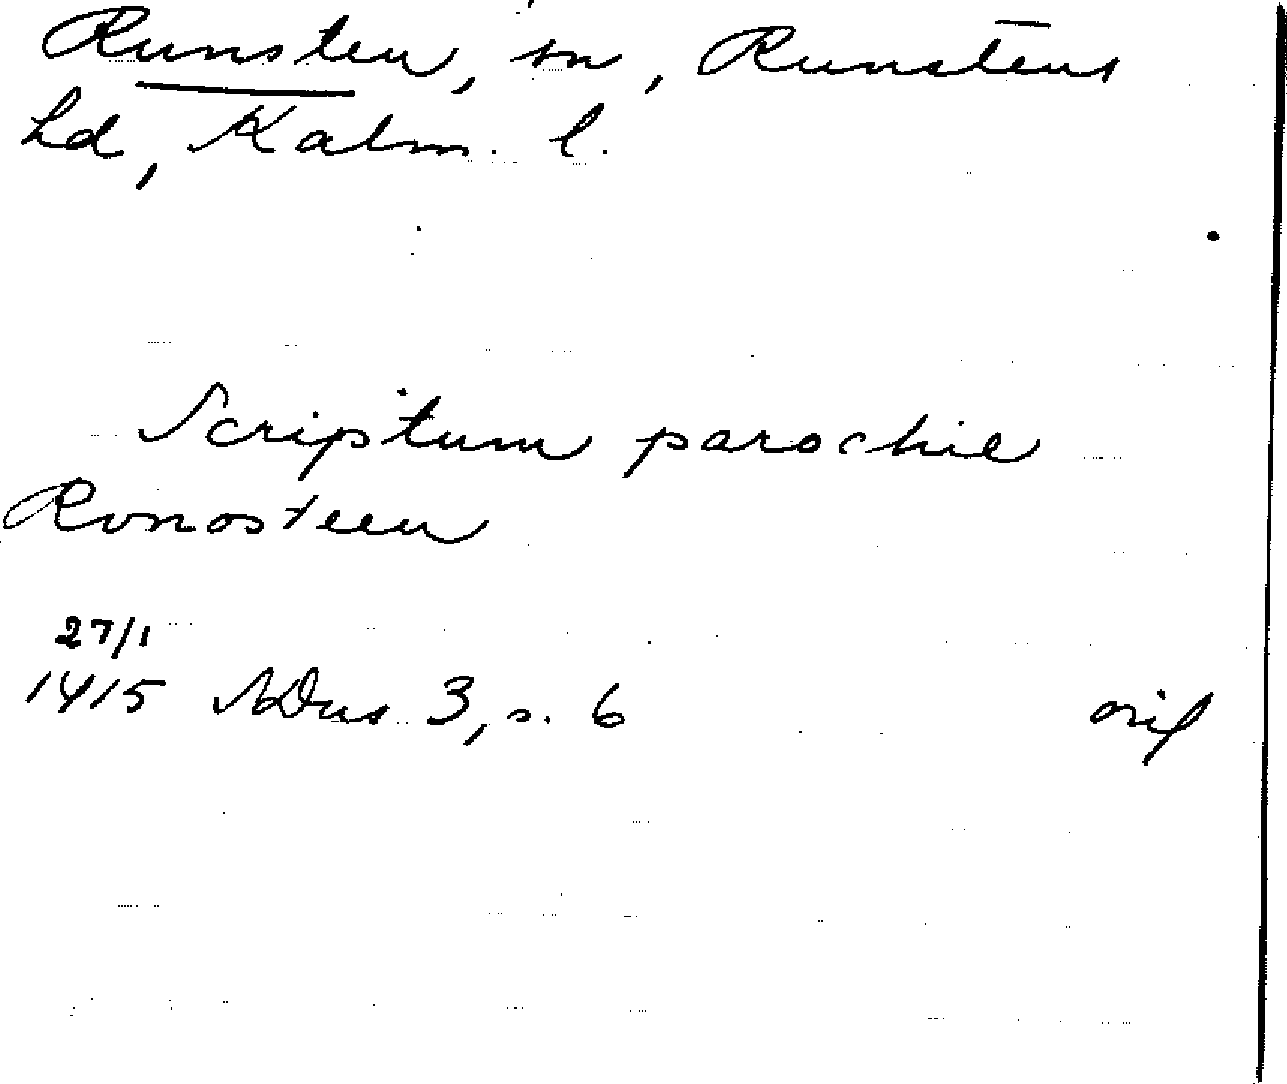 Runsten, sn, Runstens
hd, Kalm. l.
Scriptum parochie
Ronosteen
27/1
1415 SDns 3, s. 6 orig